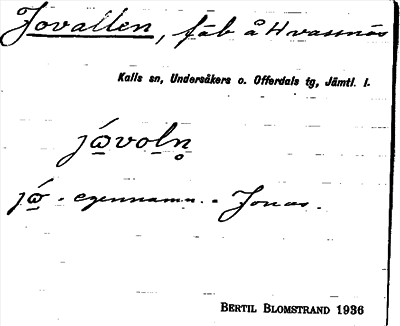 Jovallen, fäb å Hvassnäs
Kalls sn, Undersåkers o. Offerdals tg, Jämtl. l.
jówvoln̥
jów - egennamn - Jonas.
BERTIL BLOMSTRAND 1936